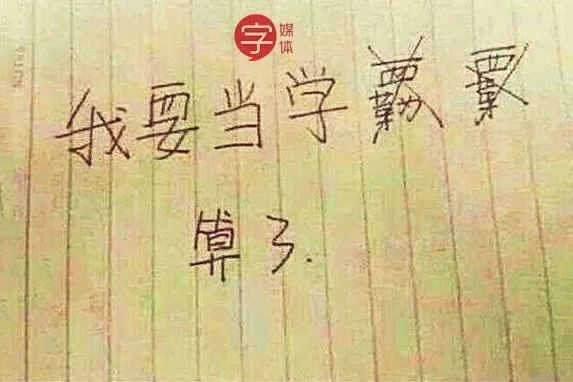 字媒体
我要当学
算了.